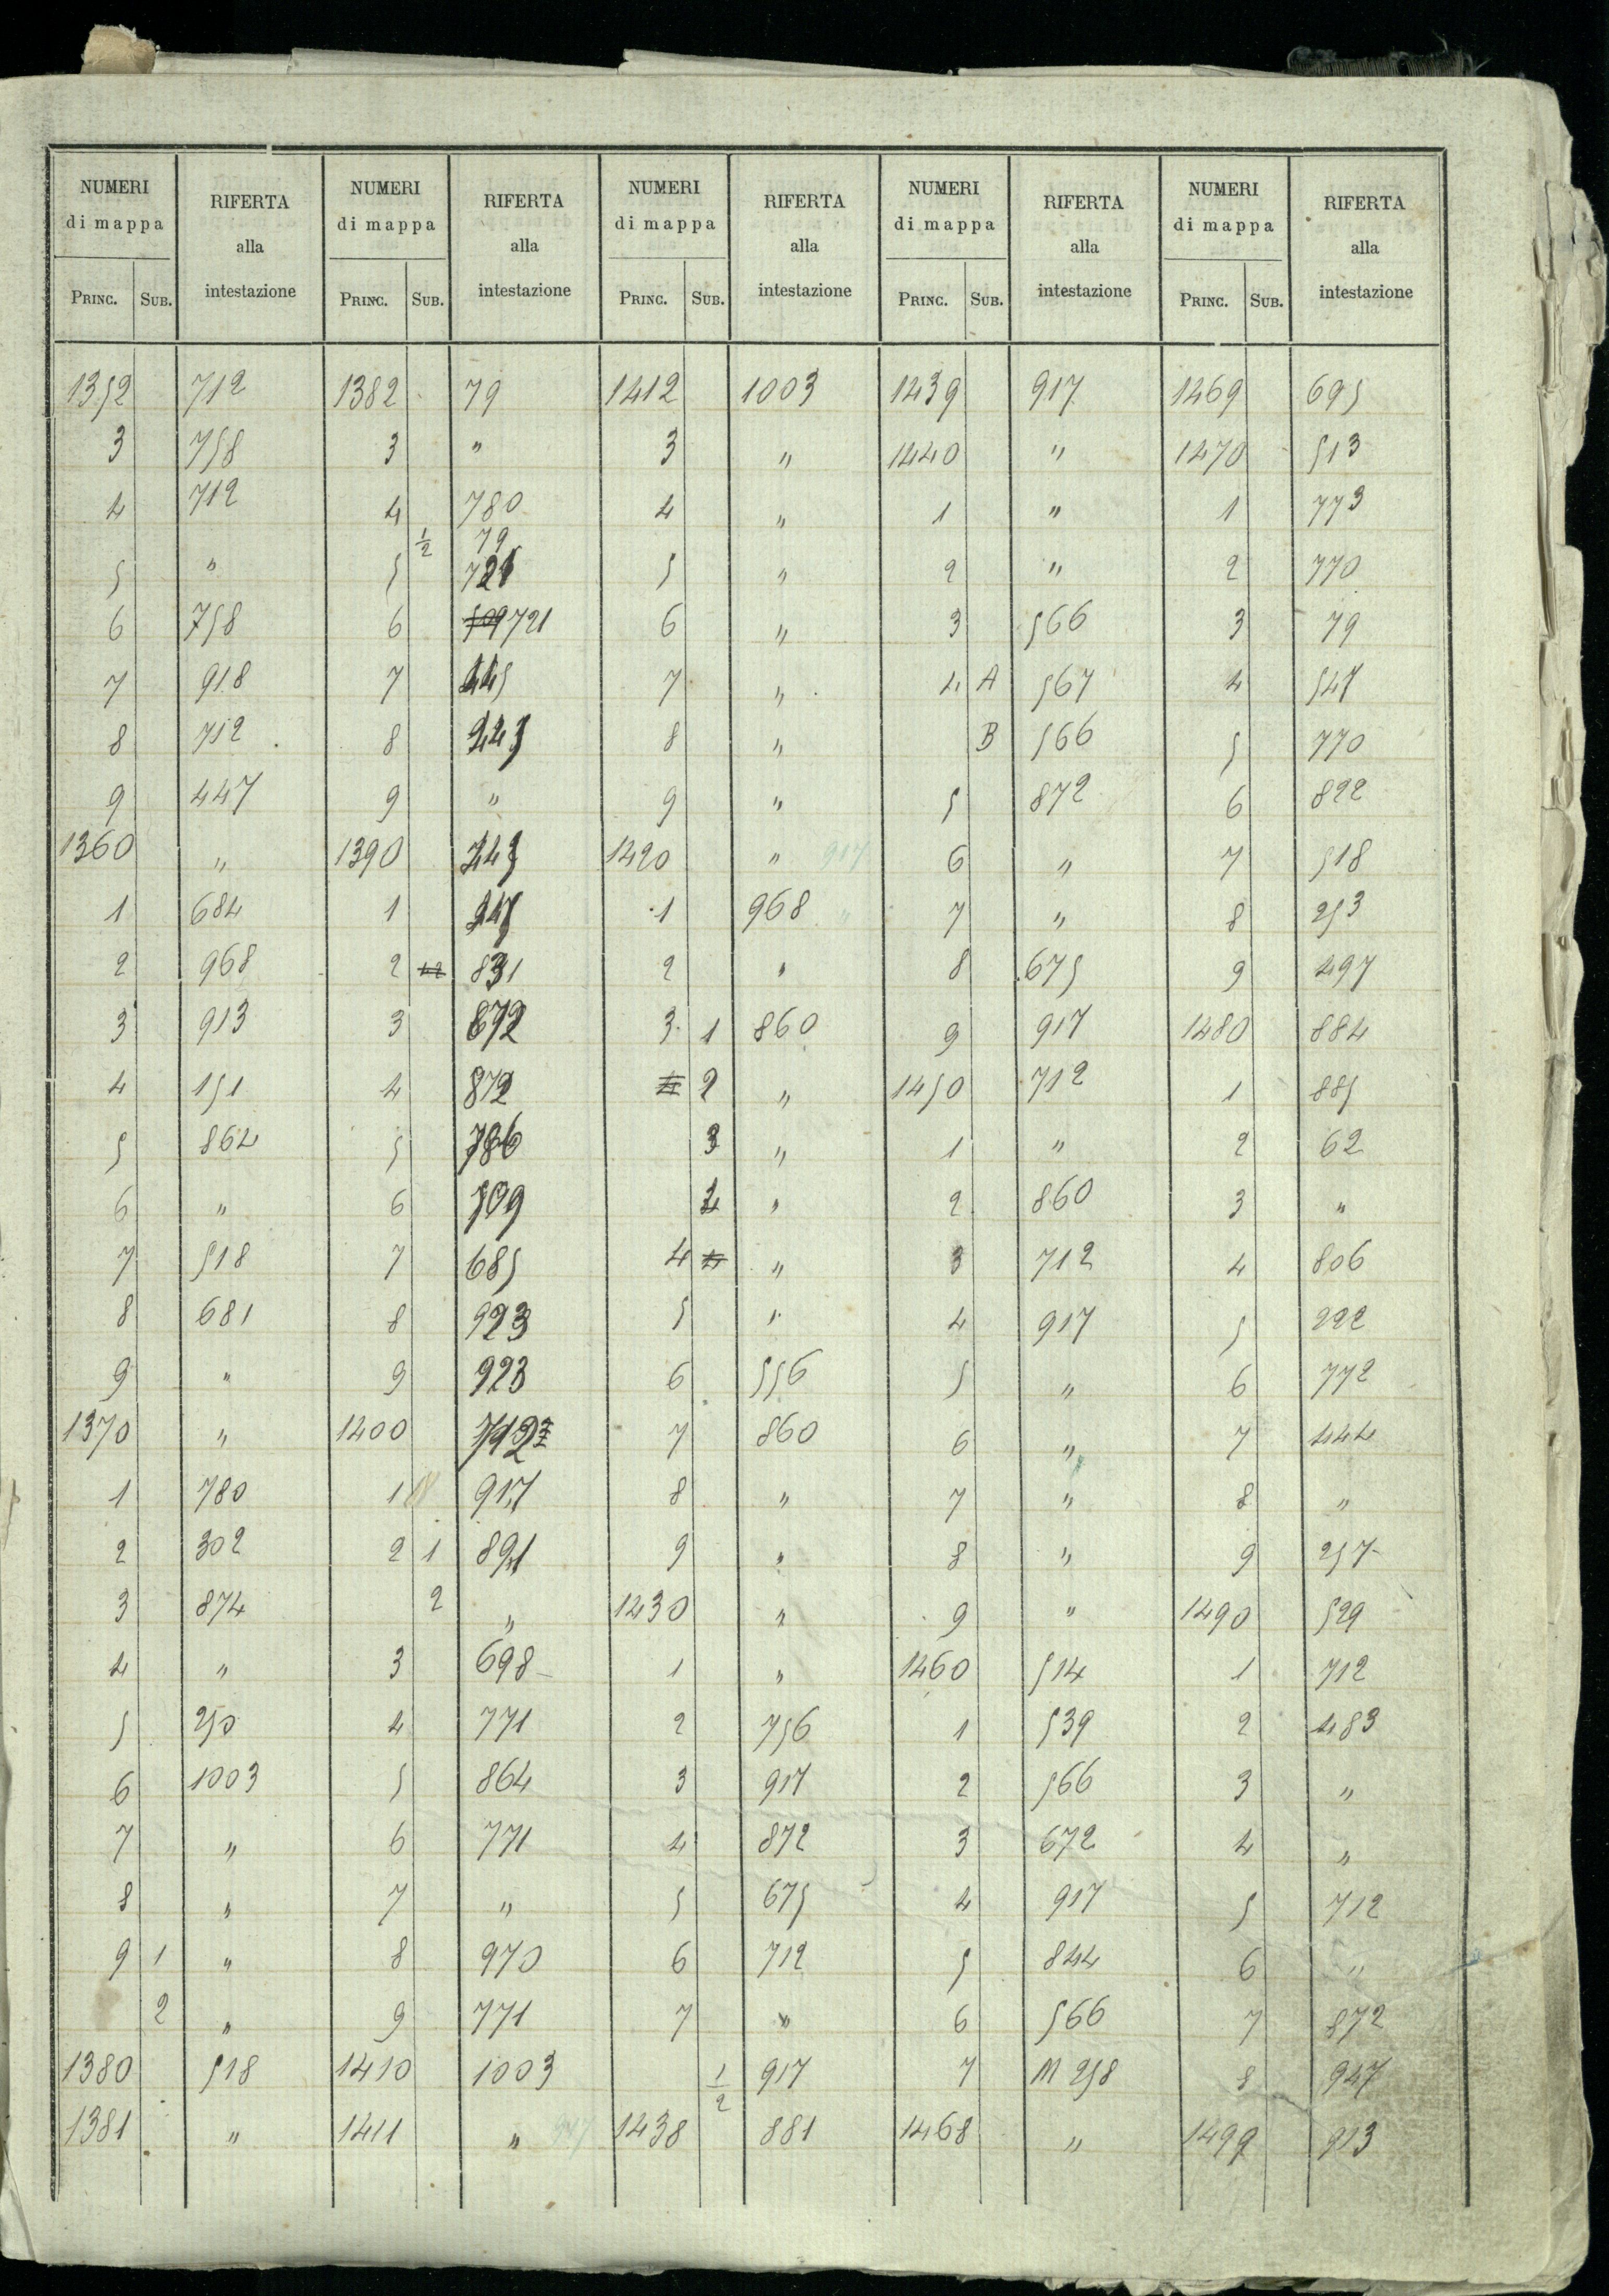 NUMERI di mappa RIFERTA alla intestazione NUMERI di mappa RIFERTA alla intestazione NUMERI di mappa RIFERTA alla intestazione NUMERI di mappa RIFERTA alla intestazione NUMERI di mappa RIFERTA alla intestazione
PRINC. SUB. PRINC. SUB. PRINC. SUB. PRINC. SUB. PRINC. SUB.
1352 712 1382 79 1412 1003 1439 917 1469 695
3 758 3 " 3 " 1440 " 1470 513
4 712 4 780 4 " 1 " 1 773
1/2 79
5 " 5 721 5 " 2 " 2 770
6 758 6 721 6 " 3 566 3 79
7 918 7 445 7 " 4 A 567 4 547
8 712 8 8 " B 566 5 770
9 447 9 " 9 " 5 872 6 822
1360 " 1390 1420 " 917 6 " 7 518
1 684 1 1 968 " 7 " 8 253
2 968 2 831 2 " 8 675 9 497
3 913 3 872 3 1 860 9 917 1480 884
4 151 4 872 2 " 1450 712 1 885
5 864 5 786 3 " 1 " 2 62
6 " 6 709 4 " 2 860 3 "
7 518 7 685 4 " 3 712 4 806
8 681 8 923 5 " 4 917 5 222
9 " 9 923 6 556 5 " 6 772
1370 " 1400 712 7 860 6 " 7 444
1 780 1 917 8 " 7 " 8 "
2 302 2 1 891 9 " 8 " 9 257
3 874 2 " 1430 " 9 " 1490 529
4 " 3 698 1 " 1460 514 1 712
5 250 4 771 2 756 1 539 2 483
6 1003 5 864 3 917 2 566 3 "
7 " 6 771 4 872 3 672 4 "
8 " 7 " 5 675 4 917 5 712
9 1 " 8 970 6 712 5 844 6 "
2 " 9 771 7 " 6 566 7 872
1380 518 1410 1003 1/2 917 7 M 258 8 947
1381 " 1411 " 947 1438 881 1468 " 1499 913